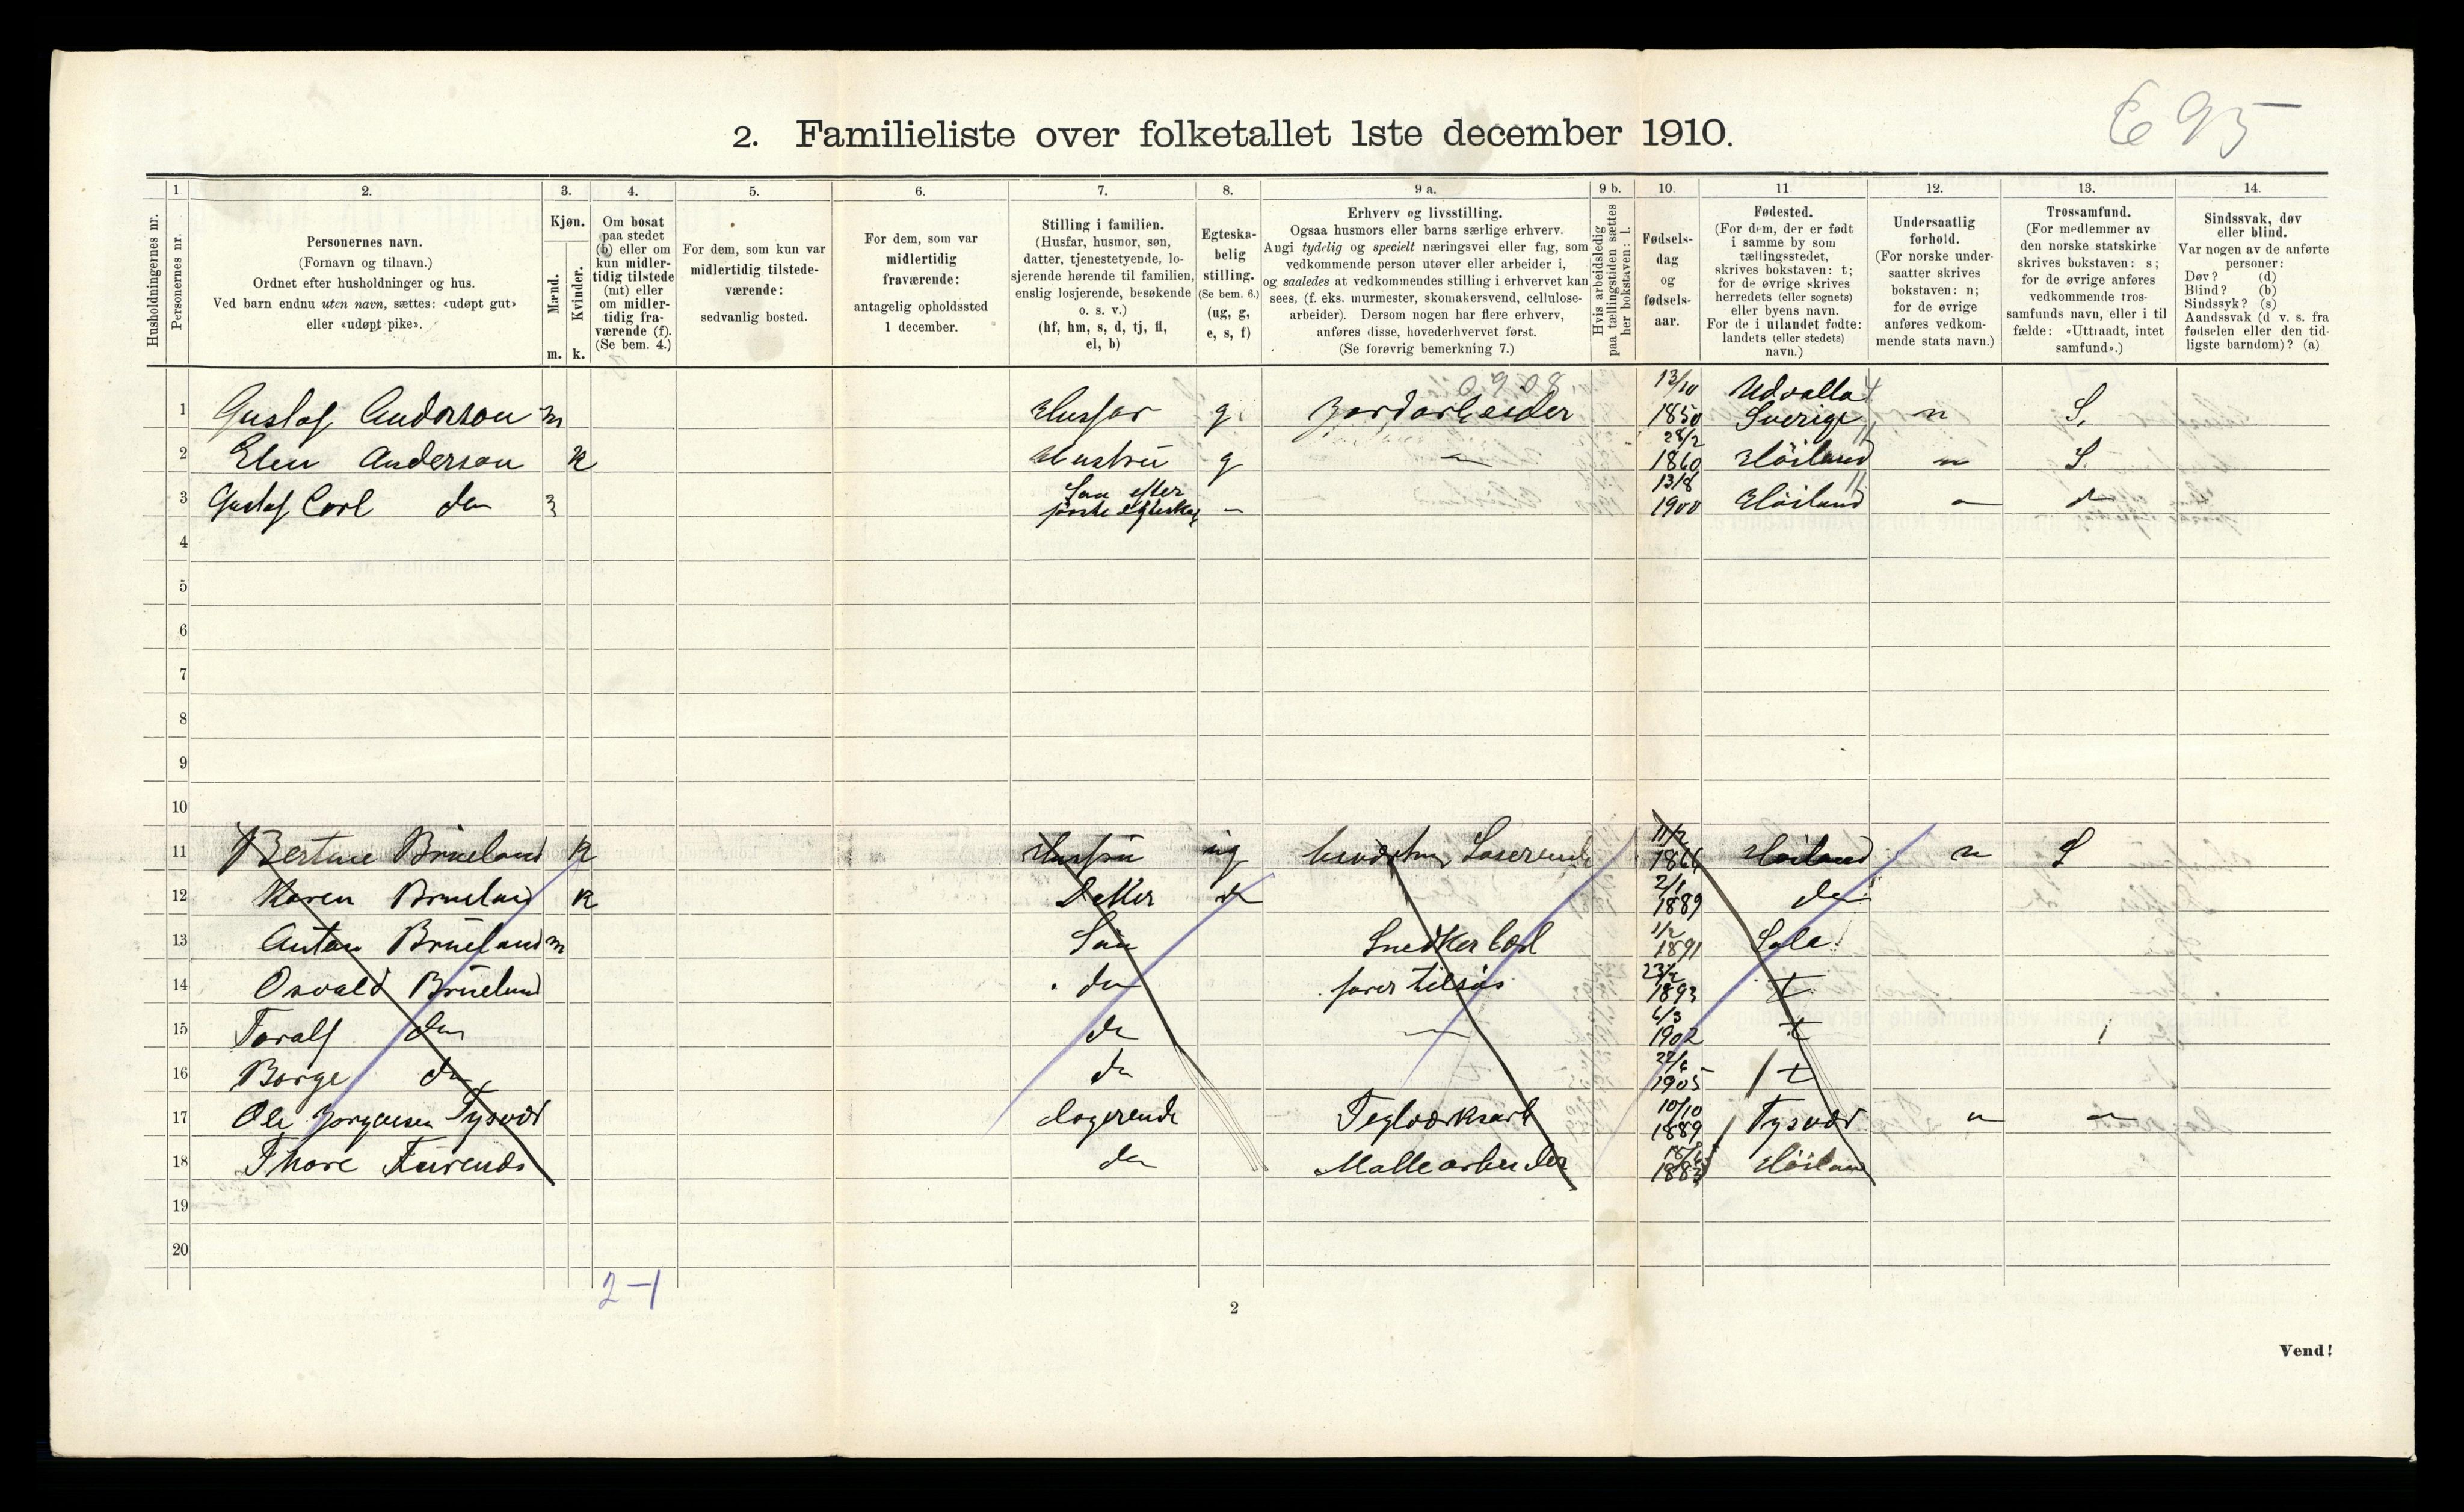 E 95
2. Familieliste over folketallet 1ste december 1910.
1 2. 3. 4. 5. 6. 7. 8. 9 a. 9 b. 10. 11. 12. 13. 14.
Husholdningernes nr.
Personernes nr.
Personernes navn.
(Fornavn og tilnavn.)
Ordnet efter husholdninger og hus.
Ved barn endnu uten navn, sættes: «udøpt gut»
eller «udøpt pike».
Kjøn.
Mænd.
Kvinder.
m. k.
Om bosat
paa stedet
(b) eller om
kun midler-
tidig tilstede
(mt) eller
om midler-
tidig fra-
værende (f).
(Se bem. 4.)
For dem, som kun var
midlertidig tilstede-
værende:
sedvanlig bosted.
For dem, som var
midlertidig
fraværende:
antagelig opholdssted
1 december.
Stilling i familien.
(Husfar, husmor, søn,
datter, tjenestetyende, lo-
sjerende hørende til familien,
enslig losjerende, besøkende
o. s. v.)
(hf, hm, s, d, tj, fl,
el, b)
Egteska-
belig
stilling.
(Se bem. 6.)
(ug, g,
e, s, f)
Erhverv og livsstilling.
Ogsaa husmors eller barns særlige erhverv.
Angi tydelig og specielt næringsvei eller fag, som
vedkommende person utøver eller arbeider i,
og saaledes at vedkommendes stilling i erhvervet kan
sees, (f. eks. murmester, skomakersvend, cellulose-
arbeider). Dersom nogen har flere erhverv,
anføres disse, hovederhvervet først.
(Se forøvrig bemerkning 7.)
Hvis arbeidsledig
paa tællingstiden sættes
her bokstaven: l.
Fødsels-
dag
og
fødsels-
aar.
Fødested.
(For dem, der er født
i samme by som
tællingsstedet,
skrives bokstaven: t;
for de øvrige skrives
herredets (eller sognets)
eller byens navn.
For de i utlandet fødte:
landets (eller stedets)
navn.)
Undersaatlig
forhold.
(For norske under-
saatter skrives
bokstaven: n;
for de øvrige
anføres vedkom-
mende stats navn.)
Trossamfund.
(For medlemmer av
den norske statskirke
skrives bokstaven: s;
for de øvrige anføres
vedkommende tros-
samfunds navn, eller i til
fælde: «Uttraadt, intet
samfund».)
Sindssvak, døv
eller blind.
Var nogen av de anførte
personer:
Døv? (d)
Blind? (b)
Sindssyk? (s)
Aandssvak (d v. s. fra
fødselen eller den tid-
ligste barndom)? (a)
0908.
1 Gustaf Anderson m Husfar g. Jordarbeider 13/10 1850 Udvalla Sverige n S.
2 Elen Anderson k Hustru g — 28/2 1860 Höiland n S.
3 Gustaf Carl do m Søn efter første Egteskap — 13/8 1900 Höiland
4
5
6
7
8
9
10
11 Bertine Brueland k Hustru ug Loserende 11/2 1866 Höiland n S
12 Karen Brueland k Datter do 2/1 1889 do
13 Anton Brueland m Søn Snedker 1/2 1891 Sola
14 Osvald Brueland do farer tilsøs 23/2 1893 t
15 Toralf do do — 6/3 1902 t
16 Borge do do 22/6 1905 t
17 Ole Jorgensen Tysvær logerende Teglværksarb 10/10 1889 Tysvær n
18 Thore do Møllearbeider 1883 Höiland
19
20
2-1
2
Vend!